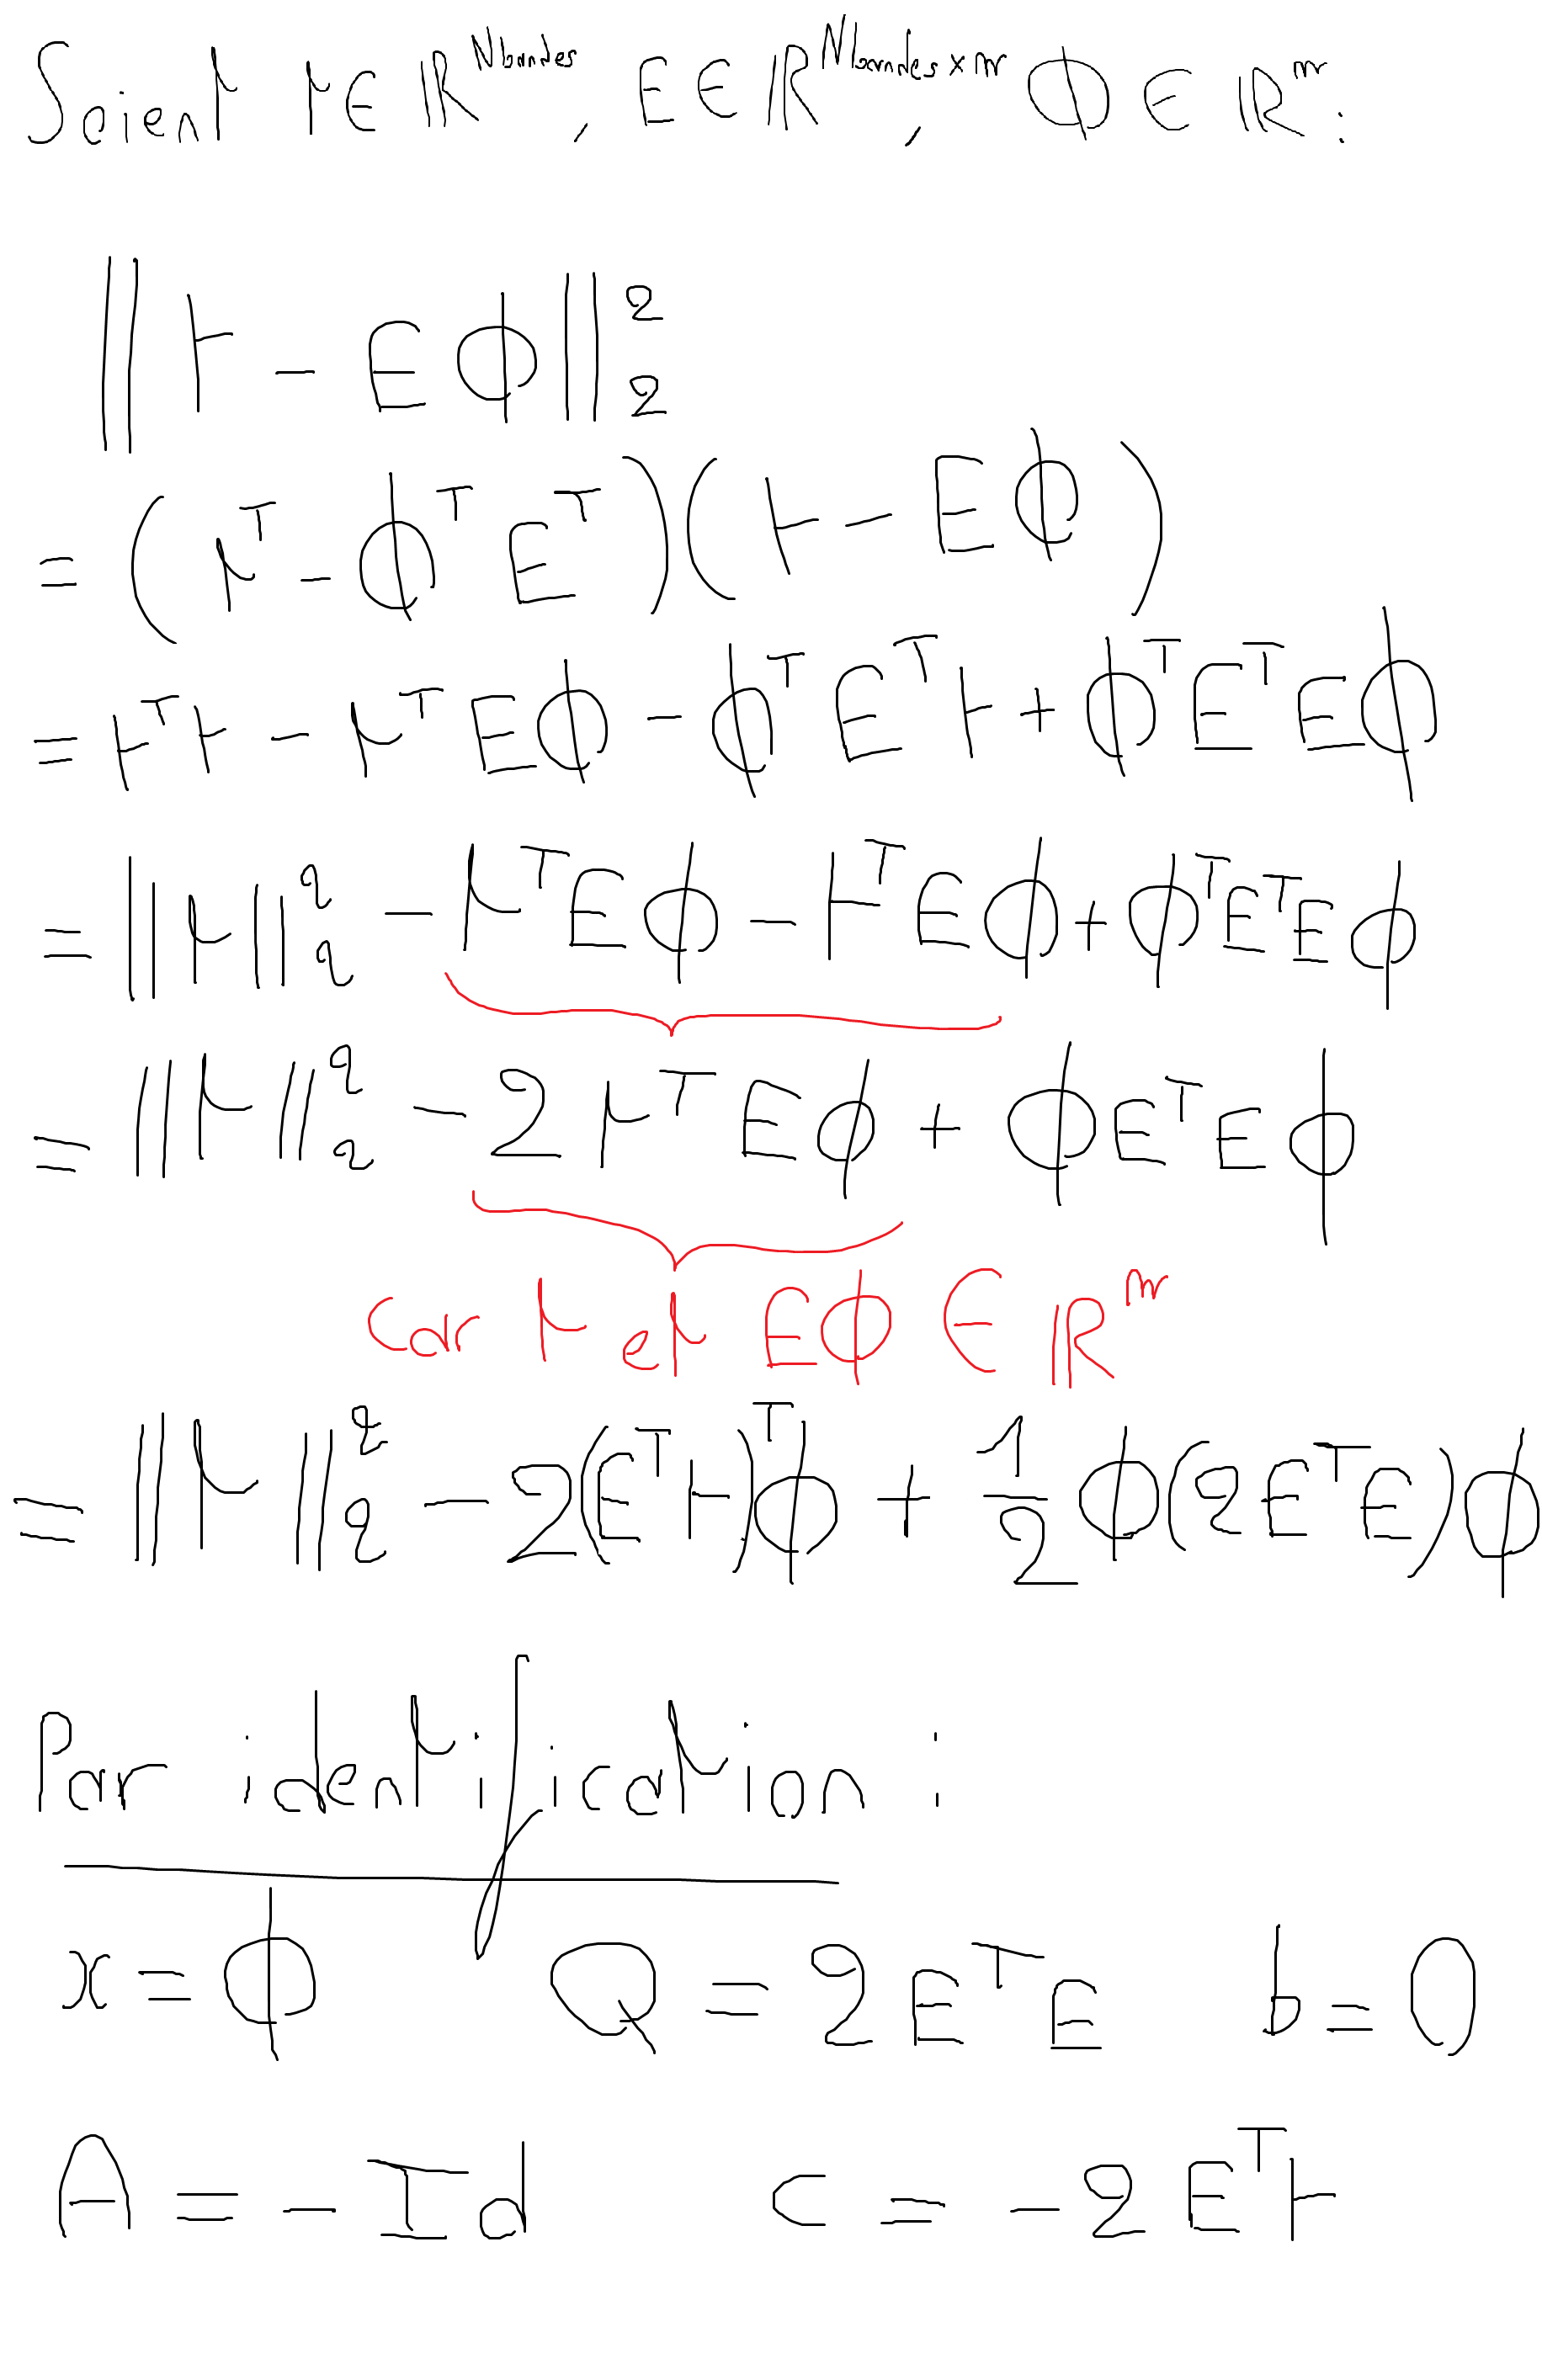 Soient r ∈ ℝ^Nbandes, E ∈ ℝ^Nbandes×m, ϕ ∈ ℝ^m :
‖r − Eϕ‖₂²
= (r^T − ϕ^T E^T)(r − Eϕ)
= r^T r − r^T Eϕ − ϕ^T E^T r + ϕ^T E^T Eϕ
= ‖r‖₂² − r^T Eϕ − r^T Eϕ + ϕ^T E^T Eϕ
= ‖r‖₂² − 2 r^T Eϕ + ϕ E^T E ϕ
car r et Eϕ ∈ ℝ^m
= ‖r‖₂² − 2(E^T r)^T ϕ + 1/2 ϕ(2E^T E)ϕ
Par identification :
x = ϕ Q = 2E^T E b = 0
A = −Id c = −2E^T r